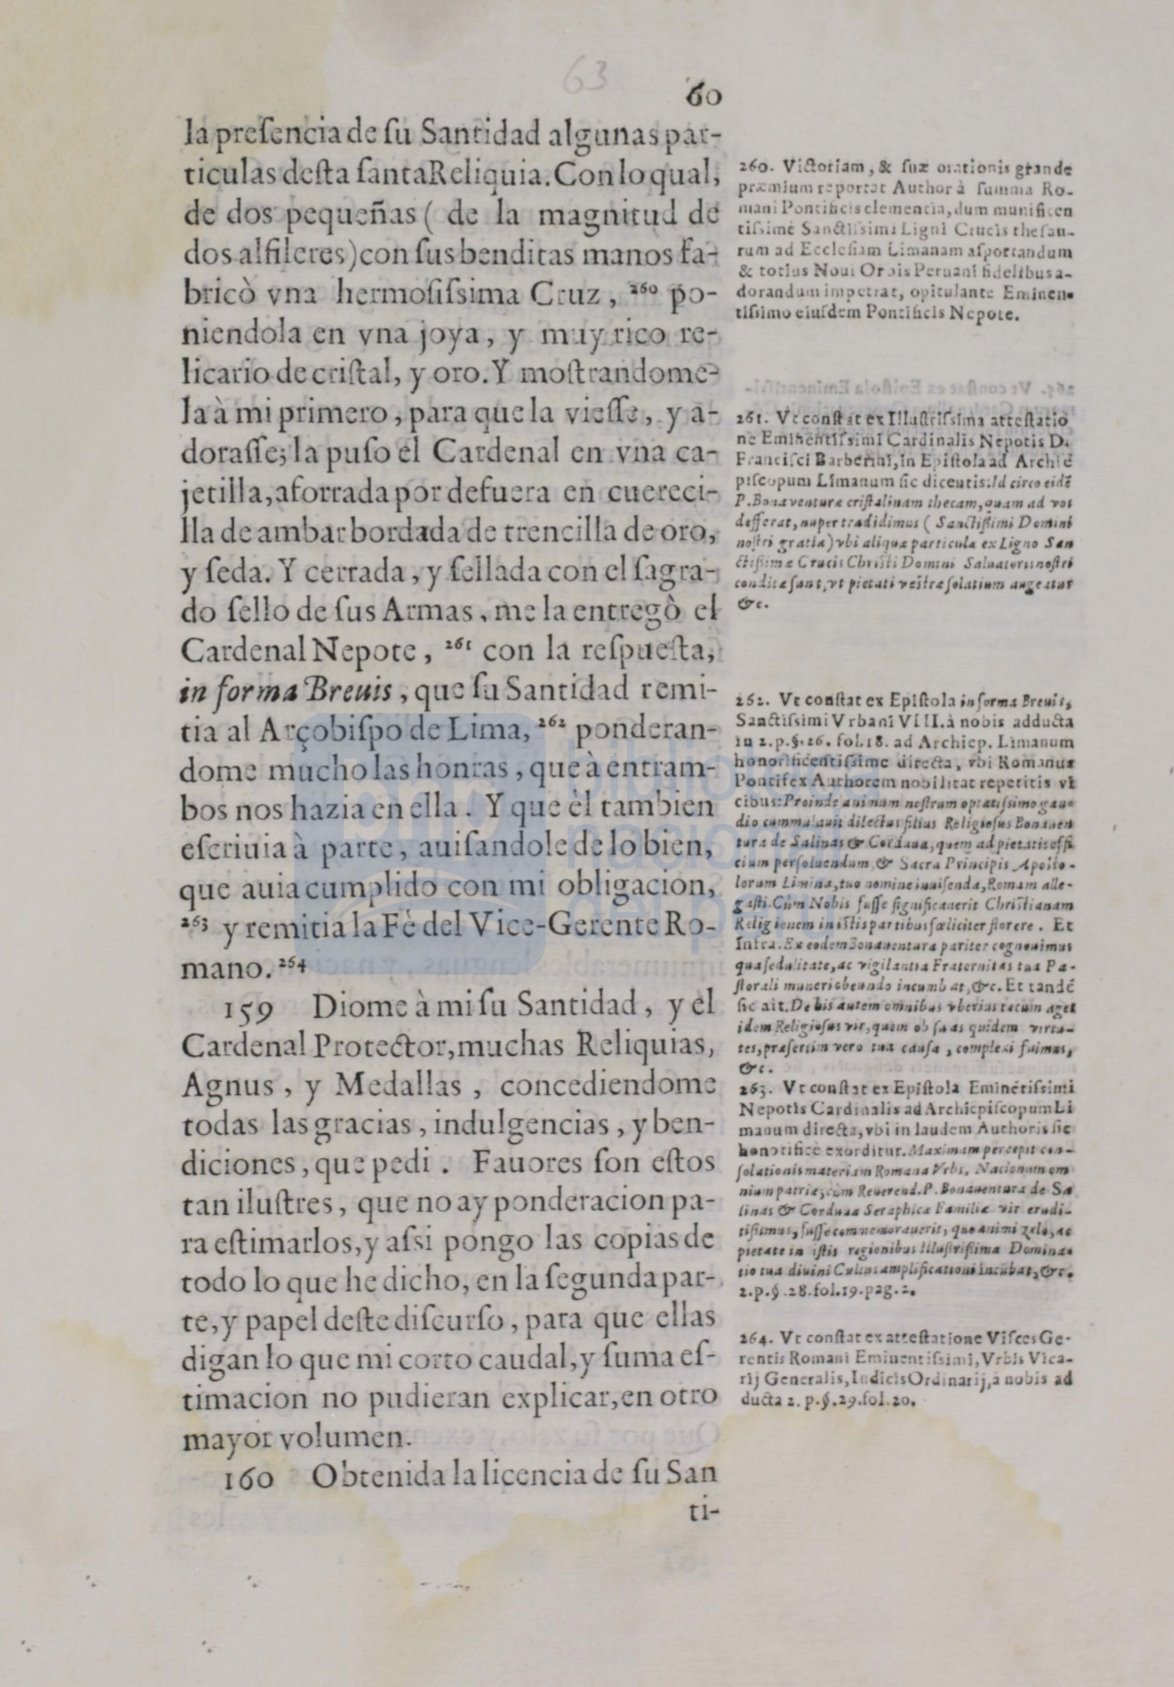 63
60
la presencia de su Santidad algunas par-
ticulas desta santaReliquia. Con lo qual,
de dos pequeñas ( de la magnitud de
dos alfileres)con sus benditas manos fa-
bricò vna hermosissima Cruz, 260 po-
niendola en vna joya, y muy rico re-
licario de cristal, y oro. Y mostrandome-
la à mi primero, para que la viesse, y a-
dorasse; la puso el Cardenal en vna ca-
jetilla, aforrada por defuera en cuereci-
lla de ambar bordada de trencilla de oro,
y seda. Y cerrada, y sellada con el sagra-
do sello de sus Armas, me la entregò el
Cardenal Nepote, 261 con la respuesta,
in forma Breuis, que su Santidad remi-
tia al Arçobispo de Lima, 262 ponderan-
dome mucho las honras, que à entram-
bos nos hazia en ella. Y que èl tambien
escriuia à parte, auisandole de lo bien,
que auia cumplido con mi obligacion,
263 y remitia la Fè del Vice-Gerente Ro-
mano. 264
159 Diome à mi su Santidad, y el
Cardenal Protector, muchas Reliquias,
Agnus, y Medallas, concediendome
todas las gracias, indulgencias, y ben-
diciones, que pedi. Fauores son estos
tan ilustres, que no ay ponderacion pa-
ra estimarlos, y assi pongo las copias de
todo lo que he dicho, en la segunda par-
te, y papel deste discurso, para que ellas
digan lo que mi corto caudal, y suma es-
timacion no pudieran explicar, en otro
mayor volumen.
160 Obtenida la licencia de su San
ti-
260. Victoriam, & suæ orationis grande
præmium reportat Author à summa Ro-
mani Pontificis clementia, dum munificen
tissimè Sanctissimi Ligni Crucis thesau-
rum ad Ecclesiam Limanam asportandum
& totius Noui Orbis Peruani fidelibus a-
dorandum impetrat, opitulante Eminen-
tissimo eiusdem Pontificis Nepote.
261. Vt constat ex Illustrissima attestatio
ne Eminentissimi Cardinalis Nepotis D.
Francisci Barberini, in Epistola ad Archie
piscopum Limanum sic dicentis: Id circo eidē
P. Bonauenturæ cristalinam thecam, quam ad vos
defferat, nuper tradidimus ( Sanctissimi Domini
nostri gratia) vbi aliqua particula ex Ligno San
ctissimæ Crucis Christi Domini Saluatoris nostri
condita sunt, vt pietati vestræ solatium augeatur
&c.
262. Vt constat ex Epistola in forma Breuis,
Sanctissimi Vrbani VIII. à nobis adducta
in 2. p. §. 26. fol. 18. ad Archiep. Limanum
honorificentissime directa, vbi Romanus
Pontifex Authorem nobilitat repetitis vi
cibus: Proinde animum nostrum optatissimo gau-
dio cummulauit dilectus filius Religiosus Bonauen
tura de Salinas & Corduua, quem ad pietatis offi
cium persoluendum, & Sacra Principis Aposto-
lorum Limina, tuo nomine inuisenda, Romam alle-
gasti. Cùm Nobis fusse significauerit Christianam
Religionem in istis partibus fæliciter florere. Et
Infra. Ex eodem Bonauentura pariter cognouimus
qua sedulitate, ac vigilantia Fraternitas tua Pa-
storali muneri obeundo incumbat, &c. Et tandē
sic ait. De his autem omnibus vberius tecum aget
idem Religiosus vir, quem ob suas quidem virtu-
tes, præsertim vero tua causa, complexi fuimus,
&c.
263. Vt constat ex Epistola Eminētissimi
Nepotis Cardinalis ad Archiepiscopum Li
manum directa, vbi in laudem Authoris sic
honorificè exorditur. Maximam percepit con-
solationis materiam Romana Vrbs, Nationum om
nium patria, cùm Reuerend. P. Bonauentura de Sa
linas & Corduua Seraphicæ Familiæ vir erudi-
tissimus, fusse commemorauerit, quo animi zelo, ac
pietate in istis regionibus Illustrissima Domina-
tio tua diuini Cultus amplificationi incūbat, &c.
2. p. §. 28. fol. 19. pag. 2.
264. Vt constat ex attestatione Visces Ge-
rentis Romani Eminentissimi, Vrbis Vica-
rij Generalis, Iudicis Ordinarij, à nobis ad
ducta 2. p. §. 29. fol. 20.